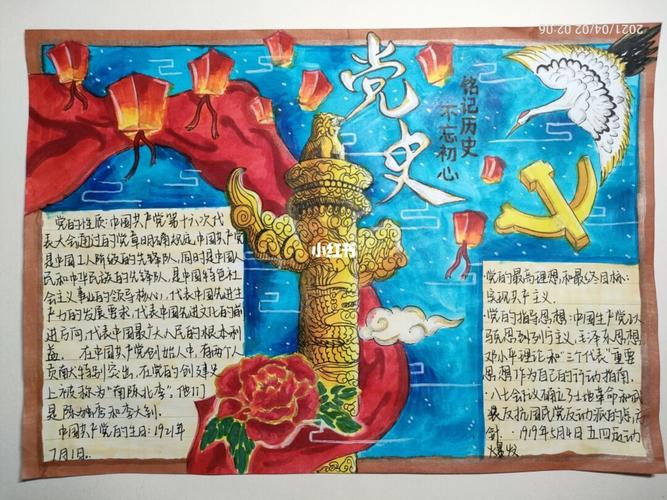 2021/04/02 02:06
党史
铭记历史
不忘初心
小红书
党的性质:中国共产党第十六次代
表大会通过的党章明确规定,中国共产党
是中国工人阶级的先锋队,同时是中国人
民和中华民族的先锋队,是中国特色社
会主义事业的领导核心,代表中国先进生
产力的发展要求,代表中国先进文化的前
进方向,代表中国最广大人民的根本利
益。 在中国共产党创始人中,有两个人
贡献特别突出,在党的创建史
上被称为“南陈北李”,他们
是陈独秀和李大钊。
中国共产党的生日:1921年
7月1日。
党的最高理想和最终目标:
实现共产主义.
·党的指导思想:中国共产党以
马克思列宁主义,毛泽东思想,
邓小平理论和“三个代表”重要
思想作为自己的行动指南.
·八七会议确定了土地革命和武
装反抗国民党反动派的总方
针. ·1919年5月4日五四运动
爆发